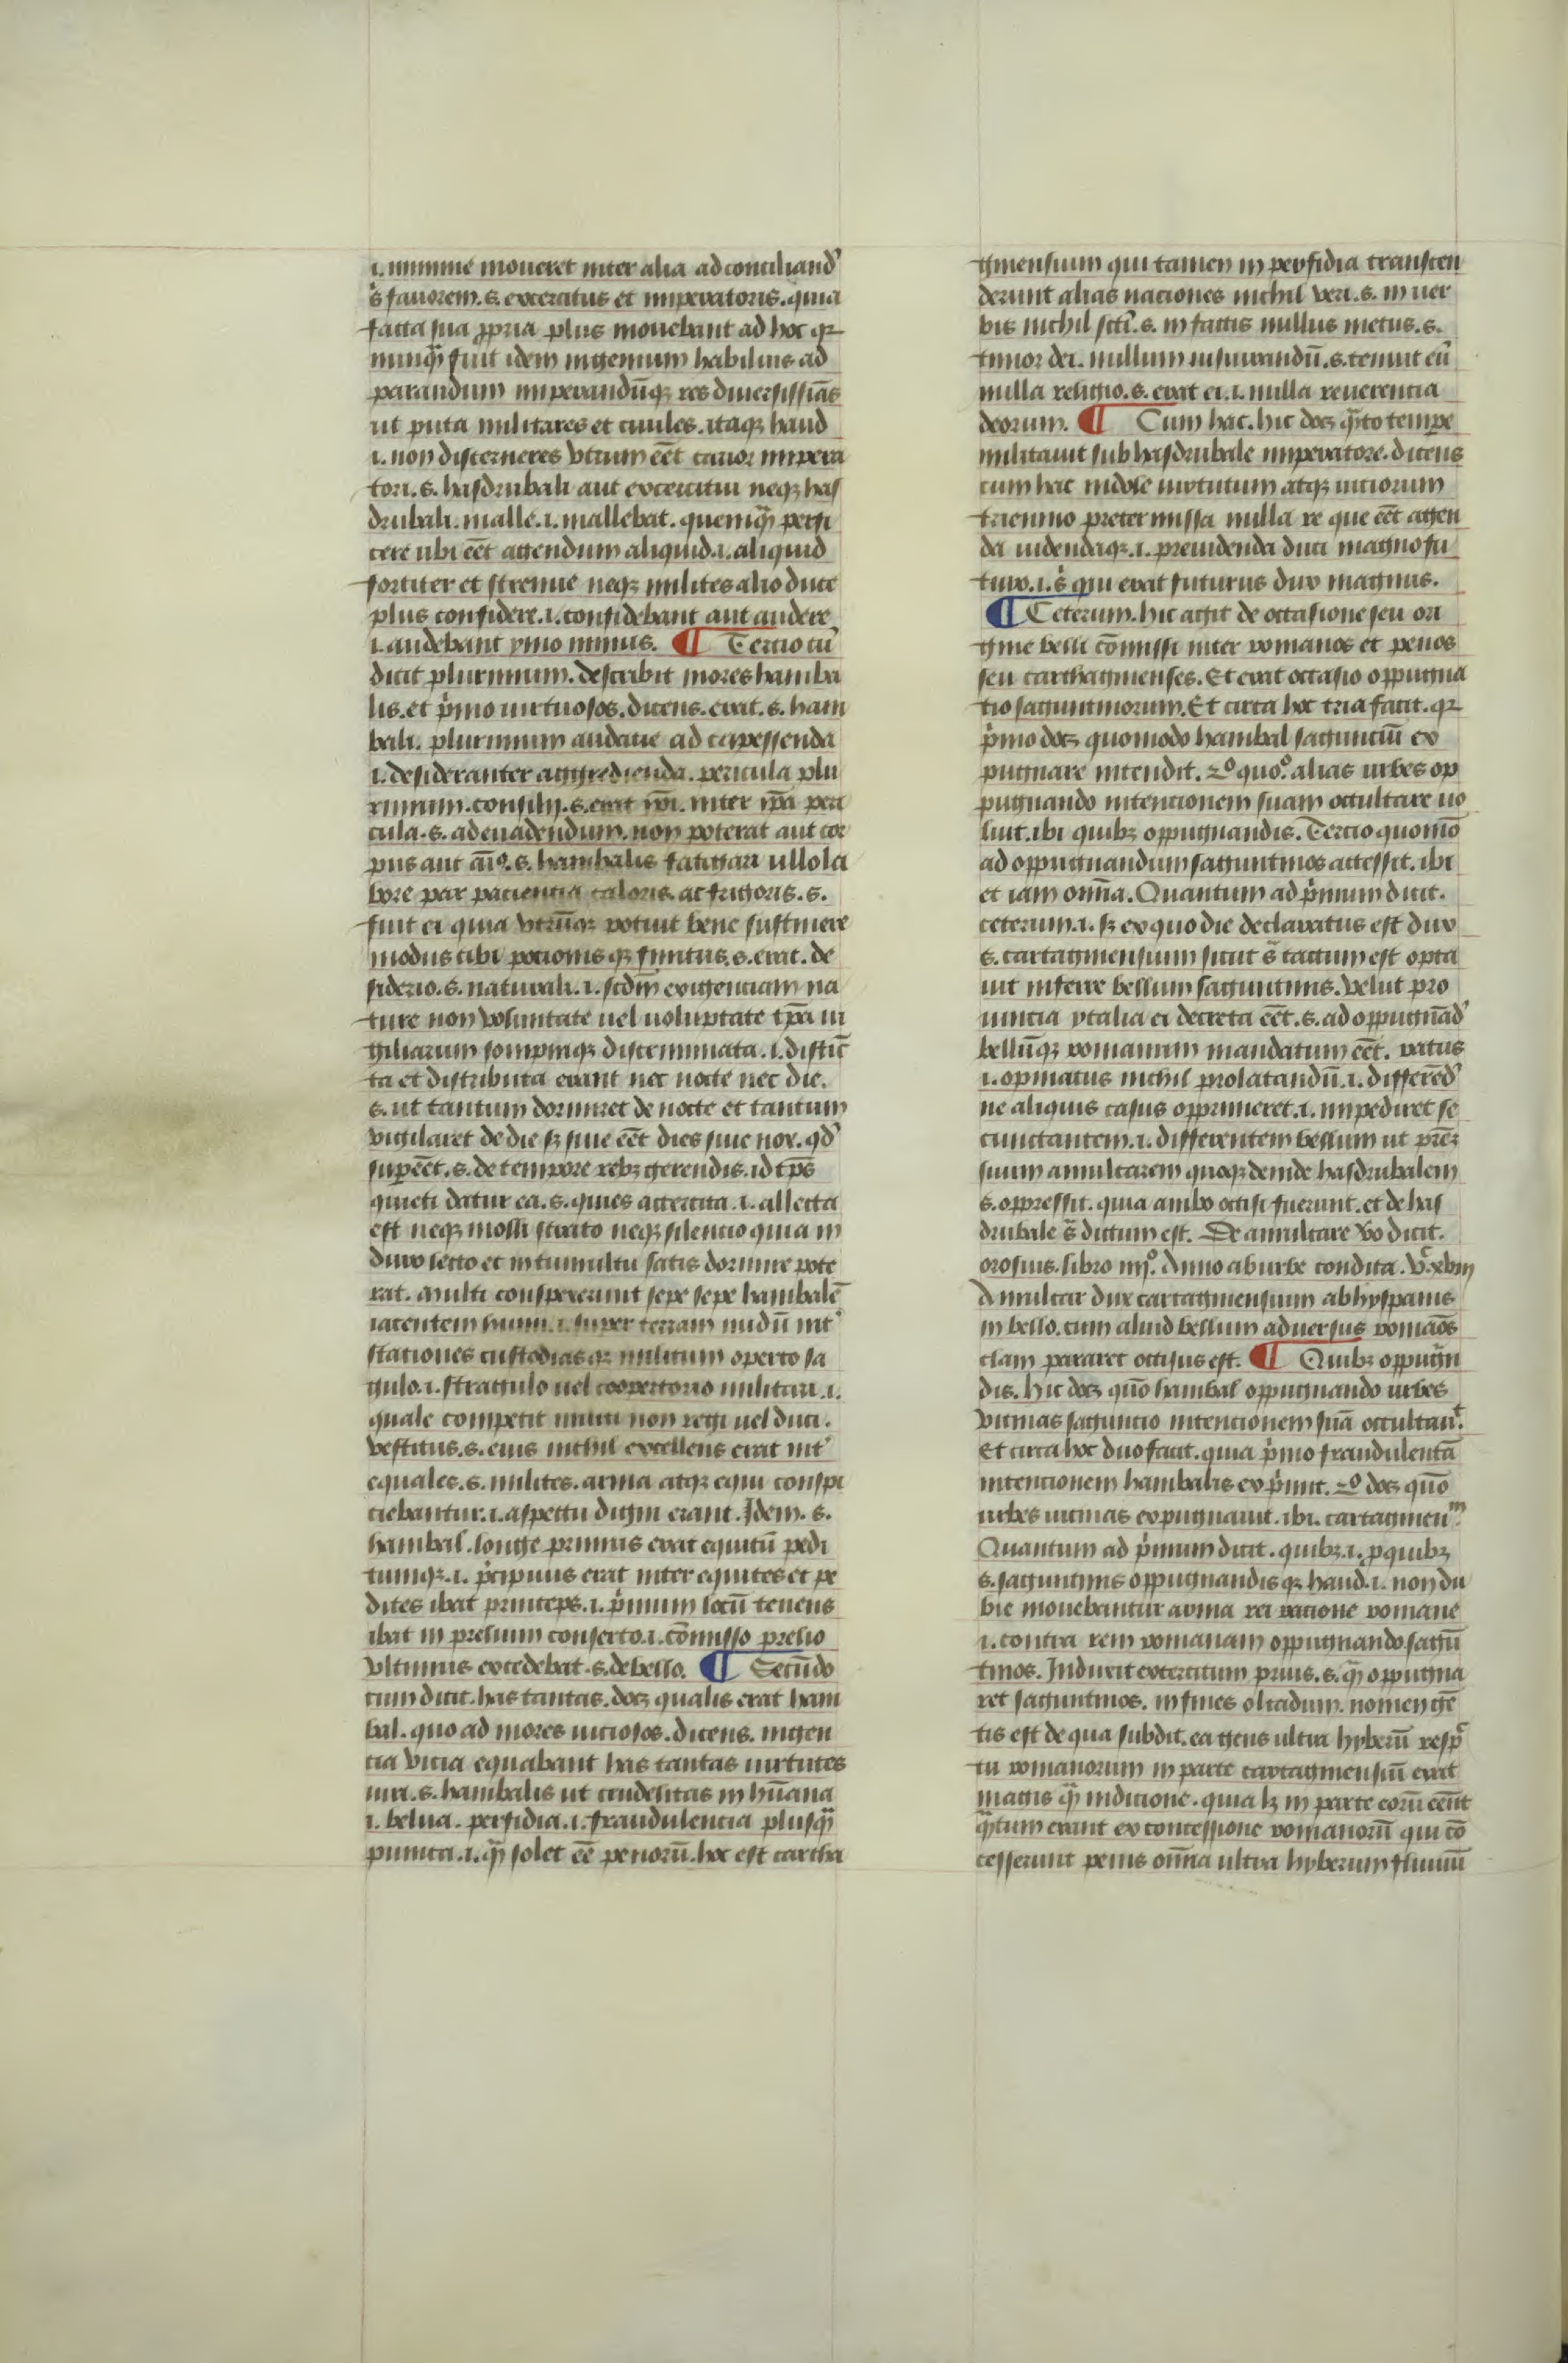 .i. minime moueret inter alia ad conciliand᷒
s̉ fauorem .s. exercitus et imperatoris. quia
facta sua ꝓpria plus mouebant ad hoc qꝛ
nunqᷓ fuit idem ingenium habilius ad
parandum imperandūqꝫ res diuersissiās
ut puta militares et ciuiles. itaqꝫ haud
.i. non discerneres vtrum eēt carior impera
tori .s. hasdrubali aut exercitui neqꝫ has
drubali. malle .i. mallebat. quemqᷓ perfi
cere ubi eēt agendum aliquid .i. aliquid
fortiter et strenue neqꝫ milites alio duce
plus confidere .i. confidebant aut audere
.i. audebant ymo minus. ¶ Tercio cū
dicit plurimum. describit mores haniba
lis. et p̉mo uirtuosos. dicens. erat .s. hani
bali. plurimum audacie ad capessenda
.i. desideranter aggredienda. pericula plu
rimum. consilij .s. erat ip̄i. inter ip̄a peri
cula .s. ad euadendum. non poterat aut cor
pus aut aīꝰ .s. hanibalis fatigari ullo la
bore par paciencia caloris. ac frigoris .s.
fuit ei quia vtrūqꝫ potuit bene sustinere
modus cibi potionisqꝫ finitus .s. erat. de
siderio .s. naturali .i. scdm̄ exigenciam na
ture non voluntate uel uoluptate tp̄a ui
giliarum sompniqꝫ discriminata .i. distīc
ta et distributa erant nec nocte nec die.
.s. ut tantum dormiret de nocte et tantum
vigilaret de die sꝫ siue eēt dies siue nox. qd᷒
suꝑeēt .s. de tempore rebꝫ gerendis. id tp̄s
quieti datur ea .s. quies accercita .i. allecta
est neqꝫ molli strato neqꝫ silencio quia in
duro lecto et in tumultu satis dormire pote
rat. Multi conspexerunt sepe sepe hanibalē
iacentem humi .i. super terram nudū int᷒
stationes custodiasqꝫ militum operto sa
gulo .i. stragulo uel coopertorio militari .i.
quale competit militi non regi uel duci.
vestitus .s. eius nichil excellens erat int᷒
equales .s. milites. arma atqꝫ equi conspi
ciebantur .i. aspectu digni erant. Idem .s.
hanibal. longe primus erat equitū pedi
tumqꝫ .i. p̉cipuus erat inter equites et pe
dites ibat princeps .i. p̉mum locū tenens
ibat in prelium conserto .i. cōmisso prelio
vltimus excedebat .s. de bello. ¶ Secūdo
cum dicit. has tantas. docꝫ qualis erat hani
bal. quo ad mores uiciosos. dicens. ingen
cia vicia equabant has tantas uirtutes
uiri .s. hanibalis ut crudelitas inhūana
.i. belua. perfidia .i. fraudulencia plusqᷓ
punica .i. qᷓ solet eē penorū. hoc est cartha
ginensium qui tamen in perfidia transcen
derunt alias naciones nichil veri .s. in uer
bis nichil scti᷒ .s. in factis nullus metus .s.
timor dei. nullum iusiurandū .s. tenuit eū
nulla religio .s. erat ei .i. nulla reuerencia
deorum. ¶ Cum hac. hic docꝫ qᷓto tempe
militauit sub hasdrubale imperatore. dicens
cum hac indole uirtutum atqꝫ uiciorum
triennio pretermissa nulla re que eēt agen
da uidendaqꝫ .i. preuidenda duci magno fu
turo .i. s̉ qui erat futurus dux magnus.
¶ Ceterum. hic agit de occasione seu ori
gine belli cōmissi inter romanos et penos
seu carthaginenses. Et erat occasio oppugna
tio saguntinorum. Et circa hoc tria facit. qꝛ
p̉mo docꝫ quomodo hanibal saguntiū ex
pugnare intendit. 2ᵒ quoᵒ. alias urbes op
pugnando intencionem suam occultare uo
luit. ibi quibꝫ oppugnandis. Tercio quomō
ad oppugnandum saguntinos accessit. ibi
et iam omīa. Quantum ad p̉mum dicit.
ceterum .i. sꝫ ex quo die declaratus est dux
.s. cartaginensium sicut sᷓ tactum est opta
uit inferre bellum saguntinis. velut pro
uincia ytalia ei decreta eēt .s. ad oppugnād᷒
bellūqꝫ romanum mandatum eēt. ratus
.i. opinatus nichil prolatandū .i. differēd᷒
ne aliquis casus opprimeret .i. impediret se
cunctantem .i. differentem bellum ut prēꝫ
suum amilcarem quoqꝫ deinde hasdrubalem
.s. oppressit. quia ambo occisi fuerunt. et de has
drubale sᷓ dictum est. De amilcare v̊o dicit.
orosius. libro iiijᵒ. Anno ab urbe condita .vᶜ.xviij
Amilcar dux cartaginensium ab hyspanis
in bello. cum aliud bellum aduersus romāos
clam pararet occisus est. ¶ Quibꝫ oppugᷓn
dis. hic docꝫ quō hanibal oppugnando urbes
vicinas saguncio intencionem suā occultauᵗ.
Et circa hoc duo facit. quia p̉mo fraudulentā
intencionem hanibalis exp̉mit. 2ᵒ docꝫ quō
urbes uicinas expugnauit. ibi. cartaginenᵐ.
Quantum ad p̉mum dicit. quibꝫ .i. ꝑ quibꝫ
.s. saguntinis oppugnandisqꝫ haud .i. non du
bie mouebantur arma rei racione romane
.i. contra rem romanam oppugnando sagū
tinos. Induxit exercitum prius .s. qᷓ oppugna
ret saguntinos. in fines olcadum. nomen gē
tis est de qua subdit. ea gens ultra hyberū resp̄c
tu romanorum in parte cartaginensiū erat
magis qᷓ in dicione. quia lꝫ in parte eorū eēnt
qᷓtum erant ex concessione romanorū qui cō
cesserunt penis omīa ultra hyberum fluuiū